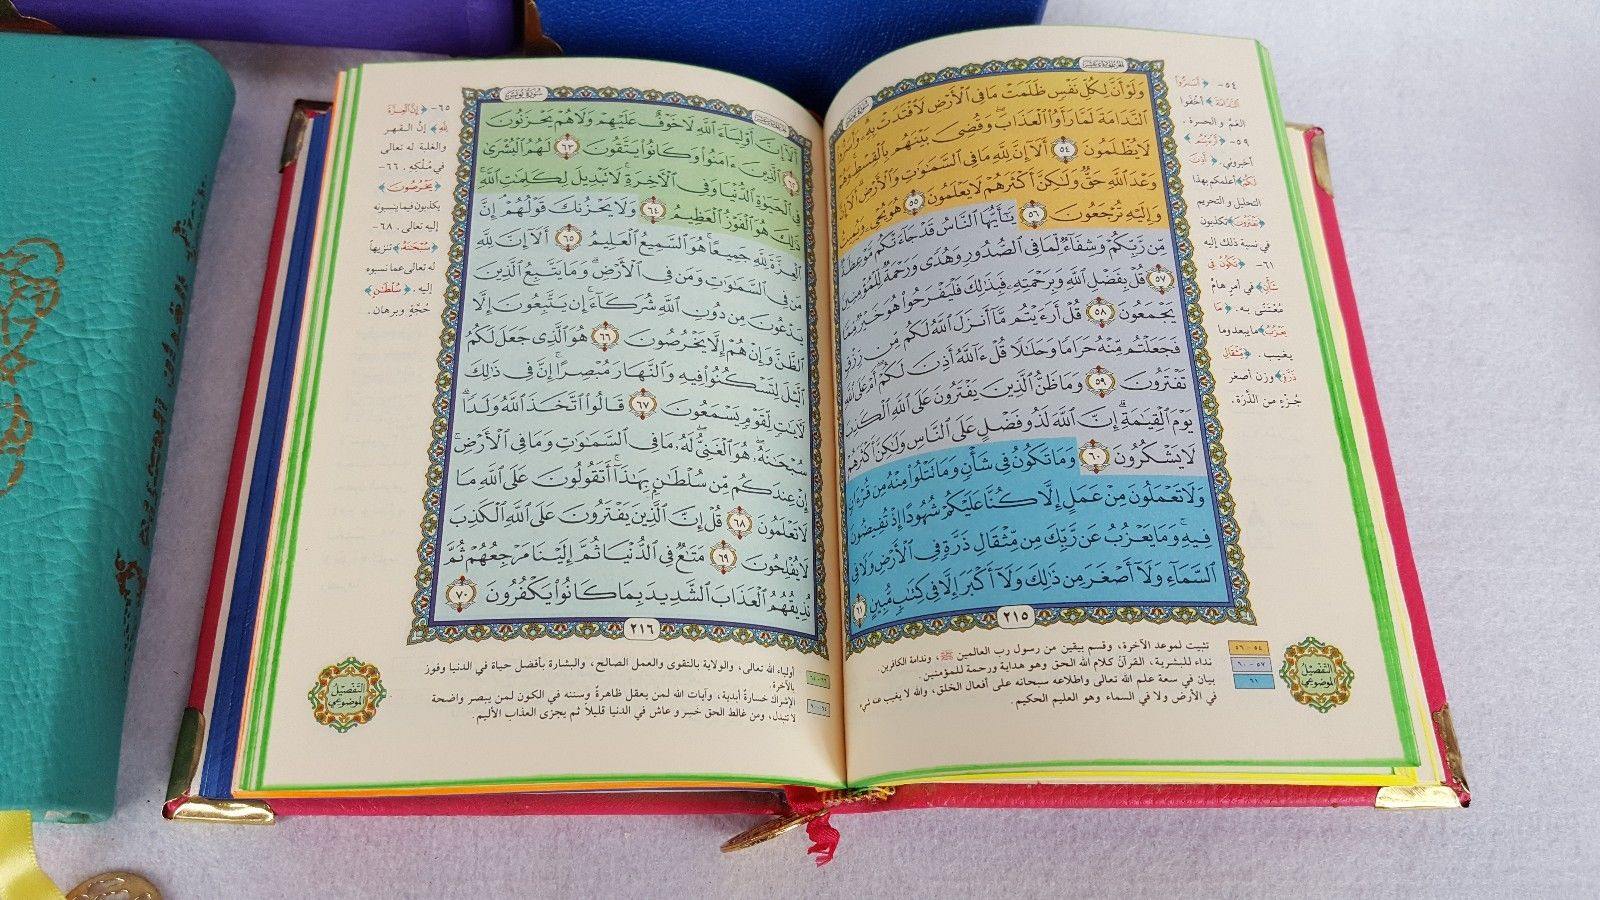 وَلَوْ أَنَّ لِكُلِّ نَفْسٍ ظَلَمَتْ مَا فِي ٱلْأَرْضِ لَٱفْتَدَتْ بِهِۦ وَأَسَرُّوا۟
ٱلنَّدَامَةَ لَمَّا رَأَوُا۟ ٱلْعَذَابَ وَقُضِيَ بَيْنَهُم بِٱلْقِسْطِ وَهُمْ
لَا يُظْلَمُونَ ٥٤ أَلَآ إِنَّ لِلَّهِ مَا فِي ٱلسَّمَٰوَٰتِ وَٱلْأَرْضِ أَلَآ إِنَّ
وَعْدَ ٱللَّهِ حَقٌّ وَلَٰكِنَّ أَكْثَرَهُمْ لَا يَعْلَمُونَ ٥٥ هُوَ يُحْيِۦ وَيُمِيتُ
وَإِلَيْهِ تُرْجَعُونَ ٥٦ يَٰٓأَيُّهَا ٱلنَّاسُ قَدْ جَآءَتْكُم مَّوْعِظَةٌ
مِّن رَّبِّكُمْ وَشِفَآءٌ لِّمَا فِي ٱلصُّدُورِ وَهُدًى وَرَحْمَةٌ لِّلْمُؤْمِنِينَ
٥٧ قُلْ بِفَضْلِ ٱللَّهِ وَبِرَحْمَتِهِۦ فَبِذَٰلِكَ فَلْيَفْرَحُوا۟ هُوَ خَيْرٌ مِّمَّا
يَجْمَعُونَ ٥٨ قُلْ أَرَءَيْتُم مَّآ أَنزَلَ ٱللَّهُ لَكُم مِّن رِّزْقٍ
فَجَعَلْتُم مِّنْهُ حَرَامًا وَحَلَٰلًا قُلْ ءَآللَّهُ أَذِنَ لَكُمْ أَمْ عَلَى ٱللَّهِ
تَفْتَرُونَ ٥٩ وَمَا ظَنُّ ٱلَّذِينَ يَفْتَرُونَ عَلَى ٱللَّهِ ٱلْكَذِبَ
يَوْمَ ٱلْقِيَٰمَةِ إِنَّ ٱللَّهَ لَذُو فَضْلٍ عَلَى ٱلنَّاسِ وَلَٰكِنَّ أَكْثَرَهُمْ
لَا يَشْكُرُونَ ٦٠ وَمَا تَكُونُ فِي شَأْنٍ وَمَا تَتْلُوا۟ مِنْهُ مِن قُرْءَانٍ
وَلَا تَعْمَلُونَ مِنْ عَمَلٍ إِلَّا كُنَّا عَلَيْكُمْ شُهُودًا إِذْ تُفِيضُونَ
فِيهِ وَمَا يَعْزُبُ عَن رَّبِّكَ مِن مِّثْقَالِ ذَرَّةٍ فِي ٱلْأَرْضِ وَلَا فِي
ٱلسَّمَآءِ وَلَآ أَصْغَرَ مِن ذَٰلِكَ وَلَآ أَكْبَرَ إِلَّا فِي كِتَٰبٍ مُّبِينٍ ٦١
٢١٥
٥٤- ﴿أَسَرُّوا۟
ٱلنَّدَامَةَ﴾ أخفَوا
الغمّ والحسرة.
٥٩- ﴿أَرَءَيْتُم﴾
أخبروني. ﴿أَذِنَ
لَكُمْ﴾ أعلمكم بهذا
التحليل والتحريم
﴿تَفْتَرُونَ﴾ تكذبون
في نسبة ذلك إليه
٦١- ﴿تَكُونُ فِي
شَأْنٍ﴾ في أمرٍ هامٍّ
مُعْتَنًى به. ﴿مَا
يَعْزُبُ﴾ ما يبعد وما
يغيب. ﴿مِثْقَالِ
ذَرَّةٍ﴾ وزن أصغر
جُزْءٍ من الذرّة.
التفصيل الموضوعي
٥٤ - ٥٦ تثبيت لموعد الآخرة، وقسم بيقين من رسول رب العالمين ﷺ، وندامة الكافرين
٥٧ - ٦٠ نداء للبشرية، القرآن كلام الله الحق وهو هداية ورحمة للمؤمنين.
٦١ بيان في سعة علم الله تعالى واطلاعه سبحانه على أفعال الخلق، والله لا يغيب عنه شيء
في الأرض ولا في السماء وهو العليم الحكيم.
سورة يونس
أَلَآ إِنَّ أَوْلِيَآءَ ٱللَّهِ لَا خَوْفٌ عَلَيْهِمْ وَلَا هُمْ يَحْزَنُونَ
٦٢ ٱلَّذِينَ ءَامَنُوا۟ وَكَانُوا۟ يَتَّقُونَ ٦٣ لَهُمُ ٱلْبُشْرَىٰ
فِي ٱلْحَيَوٰةِ ٱلدُّنْيَا وَفِي ٱلْءَاخِرَةِ لَا تَبْدِيلَ لِكَلِمَٰتِ ٱللَّهِ
ذَٰلِكَ هُوَ ٱلْفَوْزُ ٱلْعَظِيمُ ٦٤ وَلَا يَحْزُنكَ قَوْلُهُمْ إِنَّ
ٱلْعِزَّةَ لِلَّهِ جَمِيعًا هُوَ ٱلسَّمِيعُ ٱلْعَلِيمُ ٦٥ أَلَآ إِنَّ لِلَّهِ
مَن فِي ٱلسَّمَٰوَٰتِ وَمَن فِي ٱلْأَرْضِ وَمَا يَتَّبِعُ ٱلَّذِينَ
يَدْعُونَ مِن دُونِ ٱللَّهِ شُرَكَآءَ إِن يَتَّبِعُونَ إِلَّا
ٱلظَّنَّ وَإِنْ هُمْ إِلَّا يَخْرُصُونَ ٦٦ هُوَ ٱلَّذِي جَعَلَ لَكُمُ
ٱلَّيْلَ لِتَسْكُنُوا۟ فِيهِ وَٱلنَّهَارَ مُبْصِرًا إِنَّ فِي ذَٰلِكَ
لَءَايَٰتٍ لِّقَوْمٍ يَسْمَعُونَ ٦٧ قَالُوا۟ ٱتَّخَذَ ٱللَّهُ وَلَدًا
سُبْحَٰنَهُۥ هُوَ ٱلْغَنِيُّ لَهُۥ مَا فِي ٱلسَّمَٰوَٰتِ وَمَا فِي ٱلْأَرْضِ
إِنْ عِندَكُم مِّن سُلْطَٰنٍۭ بِهَٰذَآ أَتَقُولُونَ عَلَى ٱللَّهِ مَا
لَا تَعْلَمُونَ ٦٨ قُلْ إِنَّ ٱلَّذِينَ يَفْتَرُونَ عَلَى ٱللَّهِ ٱلْكَذِبَ
لَا يُفْلِحُونَ ٦٩ مَتَٰعٌ فِي ٱلدُّنْيَا ثُمَّ إِلَيْنَا مَرْجِعُهُمْ ثُمَّ
نُذِيقُهُمُ ٱلْعَذَابَ ٱلشَّدِيدَ بِمَا كَانُوا۟ يَكْفُرُونَ ٧٠
٢١٦
٦٥- ﴿إِنَّ ٱلْعِزَّةَ
لِلَّهِ﴾ إنّ القهر
والغلبة له تعالى
في مُلكِه. ٦٦-
﴿يَخْرُصُونَ﴾
يكذبون فيما ينسبونه
إليه تعالى. ٦٨-
﴿سُبْحَٰنَهُ﴾ تنزيهاً
له تعالى عما نسبوه
إليه. ﴿سُلْطَٰنٍ﴾
حُجّةٍ وبرهان.
التفصيل الموضوعي
أولياء الله تعالى، والولاية بالتقوى والعمل الصالح، والبشارة بأفضل حياة في الدنيا وفوز
بالآخرة.
الإشراك خسارة أبدية، وآيات الله لمن يعقل ظاهرة وسننه في الكون لمن يبصر واضحة
لا تتبدل، ومن غالط الحق خسر وعاش في الدنيا قليلاً ثم يجزى العذاب الأليم.